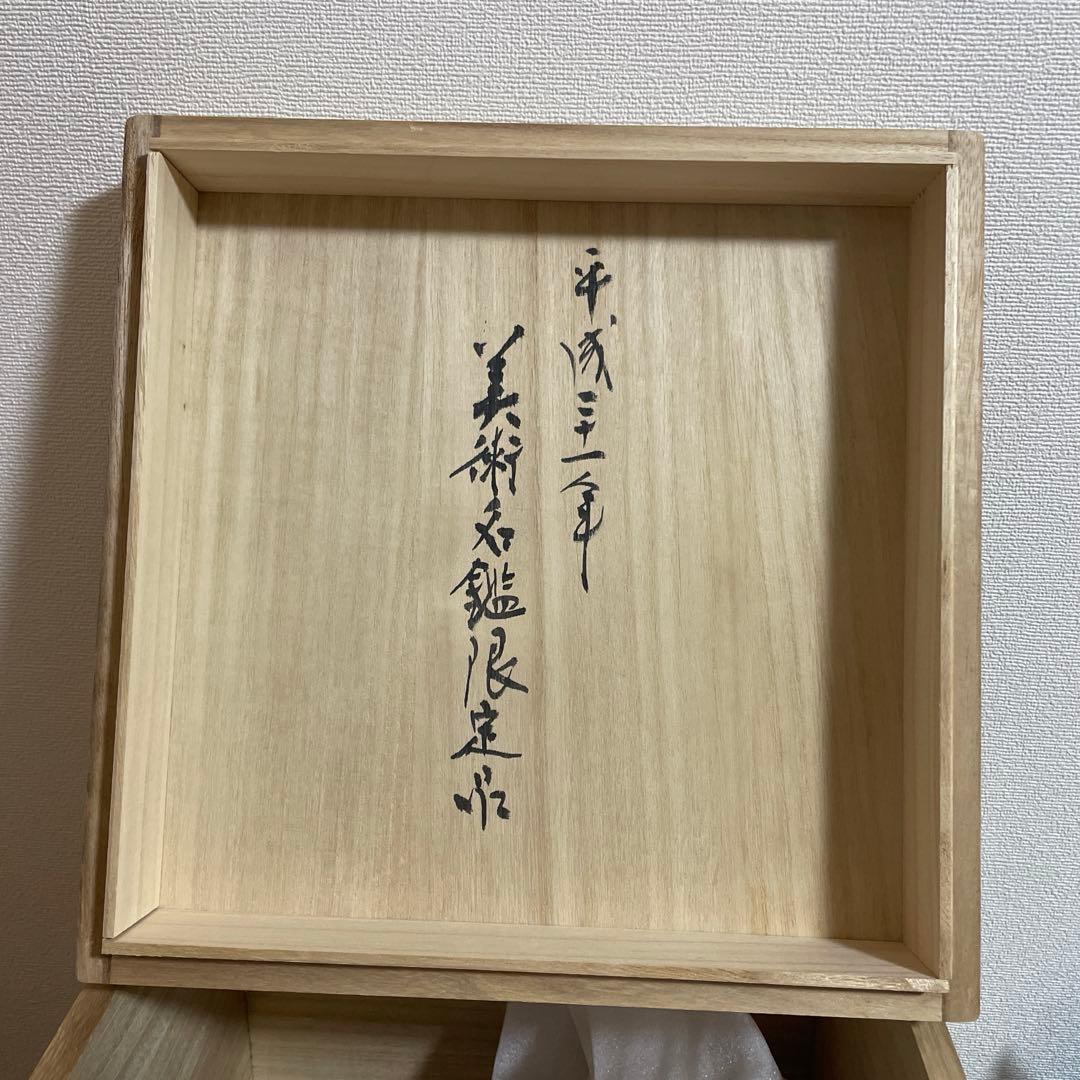 平成三十一年
美術名鑑限定品